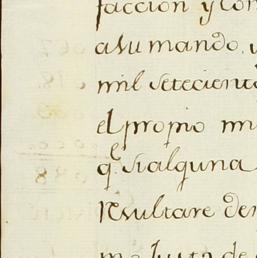 faccion y con
a su mando, y
mil setecient
el propio m
q.e si alguna
resultare de